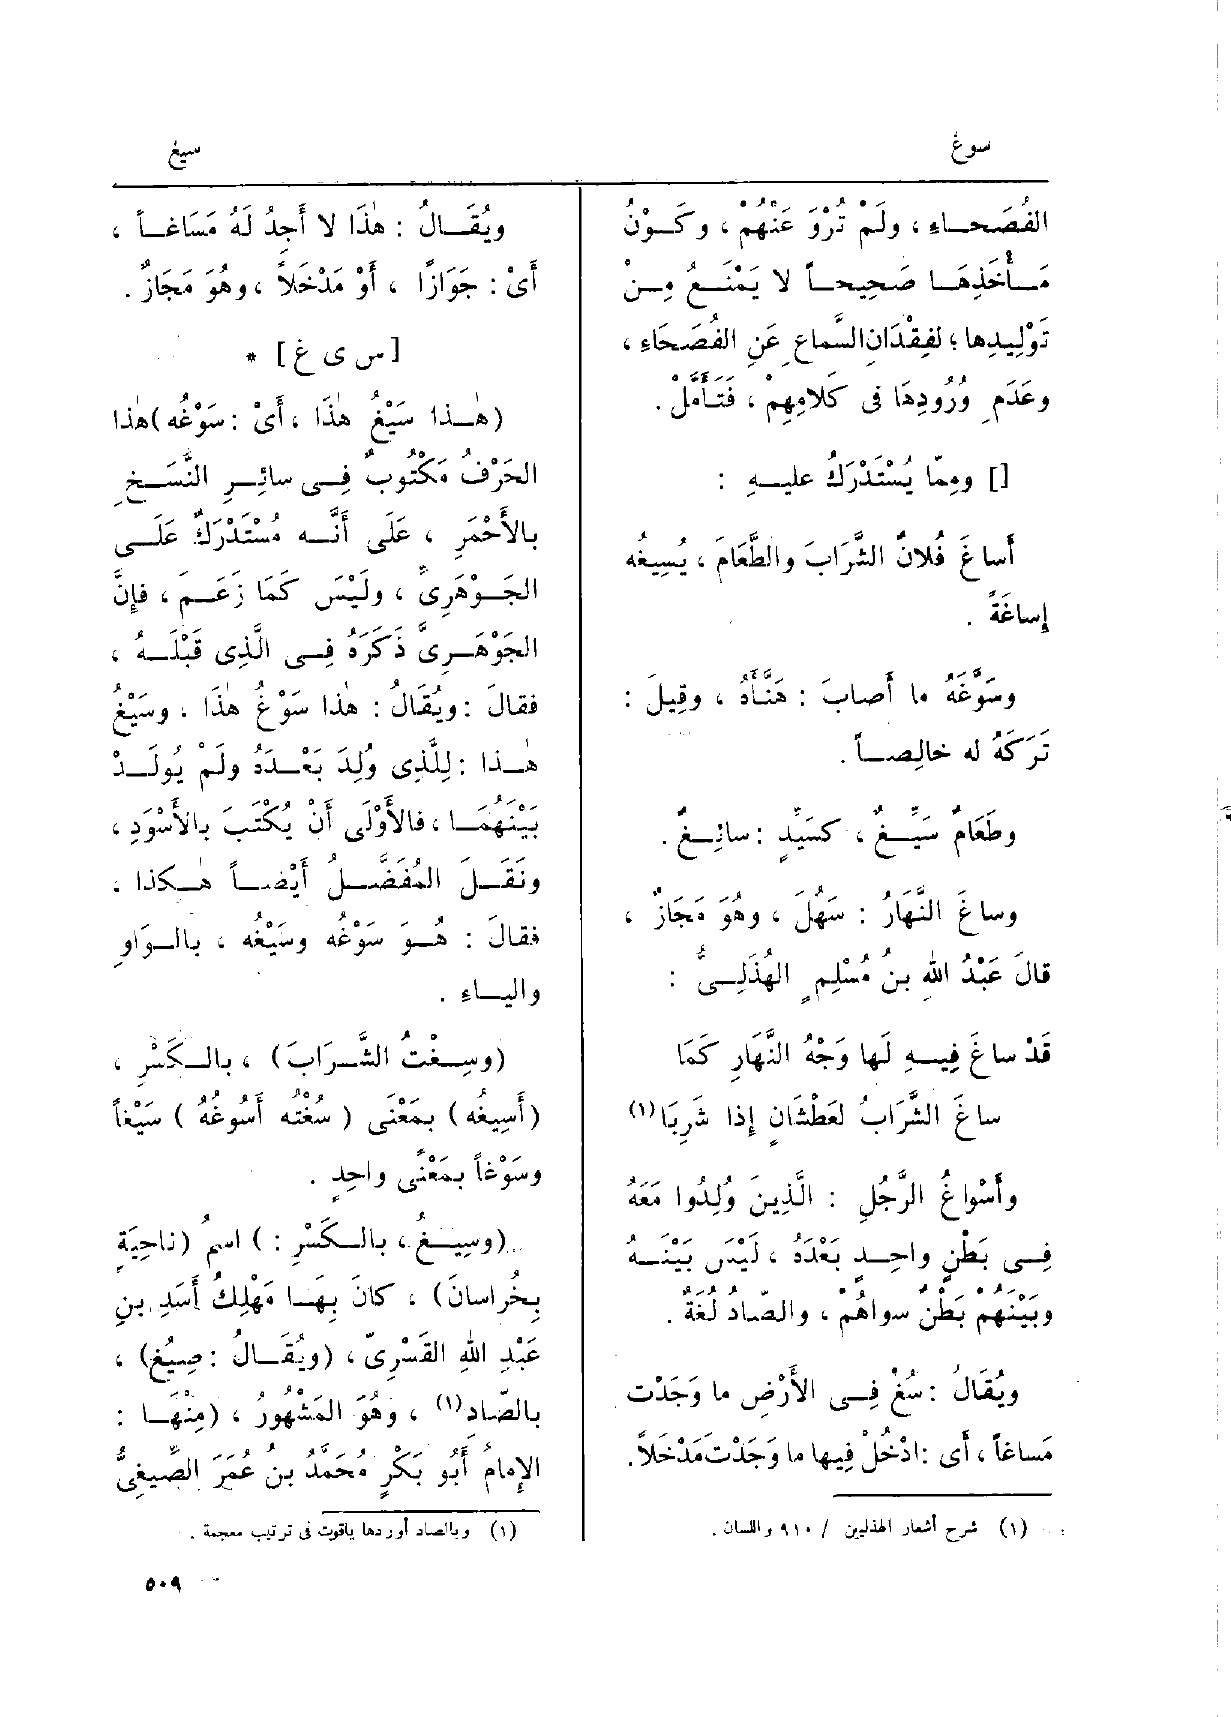 سوغ
سيغ
الفُصَحاءِ ، ولَمْ تُرْوَ عَنْهُمْ ، وكَوْنُ
مَأْخَذِهَا صَحِيحاً لا يَمْنَعُ مِنْ
تَوْلِيدِها ؛ لفِقْدَانِ السَّماعِ عَنِ الفُصَحَاءِ ،
وعَدَمِ وُرُودِهَا فى كَلامِهِمْ ، فَتَأَمَّلْ .
[] ومِمّا يُسْتَدْرَكُ عليهِ :
أَساغَ فُلانٌ الشَّرَابَ والطَّعَامَ ، يُسِيغُه
إِساغَةً .
وسَوَّغَهُ ما أَصابَ : هَنَّأَهُ ، وقِيلَ :
تَرَكَهُ له خالِصاً .
وطَعَامٌ سَيِّغٌ ، كسَيِّدٍ : سائِغٌ .
وساغَ النَّهَارُ : سَهُلَ ، وهُوَ مَجَازٌ ،
قالَ عَبْدُ اللهِ بنُ مُسْلِمٍ الهُذَلِىُّ :
قَدْ ساغَ فِيهِ لَها وَجْهُ النَّهَارِ كَمَا
ساغَ الشَّرَابُ لعَطْشَانٍ إِذا شَرِبَا(١)
وأَسْواغُ الرَّجُلِ : الَّذِينَ وُلِدُوا مَعَهُ
فِى بَطْنٍ واحِدٍ بَعْدَهُ ، لَيْسَ بَيْنَهُ
وبَيْنَهُم بَطْنٌ سواهُمْ ، والصّادُ لُغَةٌ .
ويُقَالُ : سُغْ فِى الأَرْضِ ما وَجَدْت
مَساغاً ، أَى : ادْخُلْ فِيها ما وَجَدْتَ مَدْخَلاً .
(١) شرح أشعار الهذليين / ٩١٠ واللسان .
ويُقَالُ : هٰذَا لا أَجِدُ لَهُ مَسَاغاً ،
أَىْ : جَوَازًا ، أَوْ مَدْخَلاً ، وهُوَ مَجَازٌ .
[ س ى غ ] *
(هٰذا سَيْغُ هٰذَا ، أَىْ : سَوْغُه) هٰذا
الحَرْفُ مَكْتُوبٌ فِى سائِرِ النُّسَخِ
بالأَحْمَرِ ، عَلَى أَنَّه مُسْتَدْرَكٌ عَلَى
الجَوْهَرِىِّ ، ولَيْسَ كَمَا زَعَمَ ، فإِنَّ
الجَوْهَرِىَّ ذَكَرَهُ فِى الَّذِى قَبْلَهُ ،
فقالَ : ويُقَالُ : هٰذا سَوْغُ هٰذَا ، وسَيْغُ
هٰذا : لِلَّذِى وُلِدَ بَعْدَهُ ولَمْ يُولَدْ
بَيْنَهُمَا ، فالأَوْلَى أَنْ يُكْتَبَ بالأَسْوَدِ ،
ونَقَلَ المُفَضَّلُ أَيْضاً هٰكذا ،
فقالَ : هُوَ سَوْغُه وسَيْغُه ، بالوَاوِ
والياءِ .
(وسِغْتُ الشَّرَابَ) ، بالكَسْرِ ،
(أَسِيغُه) بمَعْنَى ( سُغْتُه أَسُوغُهُ ) سَيْغاً
وسَوْغاً بمَعْنًى واحِدٍ .
(وسِيغُ ، بالكَسْرِ : ) اسمُ (ناحِيَةٍ
بخُراسانَ) ، كانَ بِهَا مَهْلِكُ أَسَدِ بنِ
عَبْدِ اللهِ القَسْرِىّ ، (ويُقَالُ : صِيغُ) ،
بالصّادِ(١) ، وهُوَ المَشْهُورُ ، (مِنْهَا :
الإِمامُ أَبُو بَكْرٍ مُحَمَّدُ بن عُمَرَ الصِّيغِىُّ
(١) وبالصاد أوردها ياقوت فى ترتيب معجمة .
٥٠٩